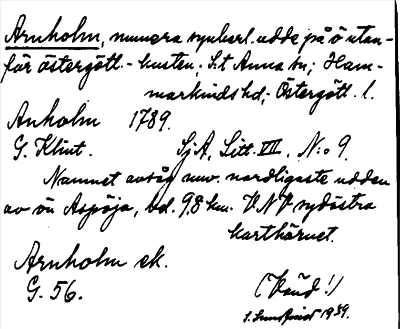 Arnholm, numera synbarl. udde på ö utan-
för Östergötl.-kusten, S:t Anna sn; Ham-
markinds hd, Östergötl. l.
Anholm 1789.
G. Klint. SjA, Litt. VII, N:o 9.
Namnet avsåg nuv. nordligaste udden
av ön Aspöja, bel. 9,8 km. VNV sydöstra
karthörnet.
Arnholm ek.
G. 56.
1939.